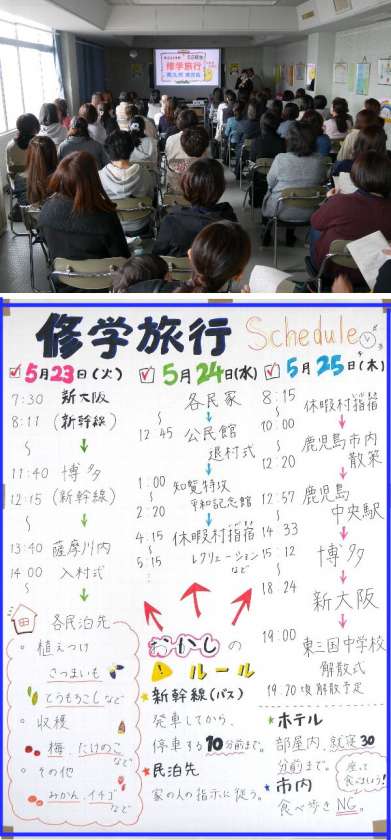 修学旅行
修学旅行 Schedule
5月23日(火)
7:30 新大阪
8:11 (新幹線)
〜
11:40 博多
12:15 (新幹線)
〜
13:40 薩摩川内
14:00 入村式
〜
各民泊先
・植えつけ
さつまいも
とうもろこしなど
・収穫
梅、たけのこ
など
・その他
みかん、イチゴ
など
5月24日(水)
各民家
〜
12 45 公民館
退村式
1:00 知覧特攻
〜
2:20 平和記念館
4:15 休暇村指宿
〜
5:15 レクリエーション
など
5月25日(木)
8:15 休暇村指宿
〜
10:00 鹿児島市内
〜
12:20 散策
12:57 鹿児島
〜 中央駅
14 33
15 12 博多
〜
18:24 新大阪
19:00 東三国中学校
解散式
19:20頃解散予定
おかしの
ルール
新幹線(バス)
発車してから、
停車する10分前まで。
民泊先
家の人の指示に従う。
ホテル
部屋内、就寝30
分前まで。
市内
食べ歩きNG。
座って
食べましょう!